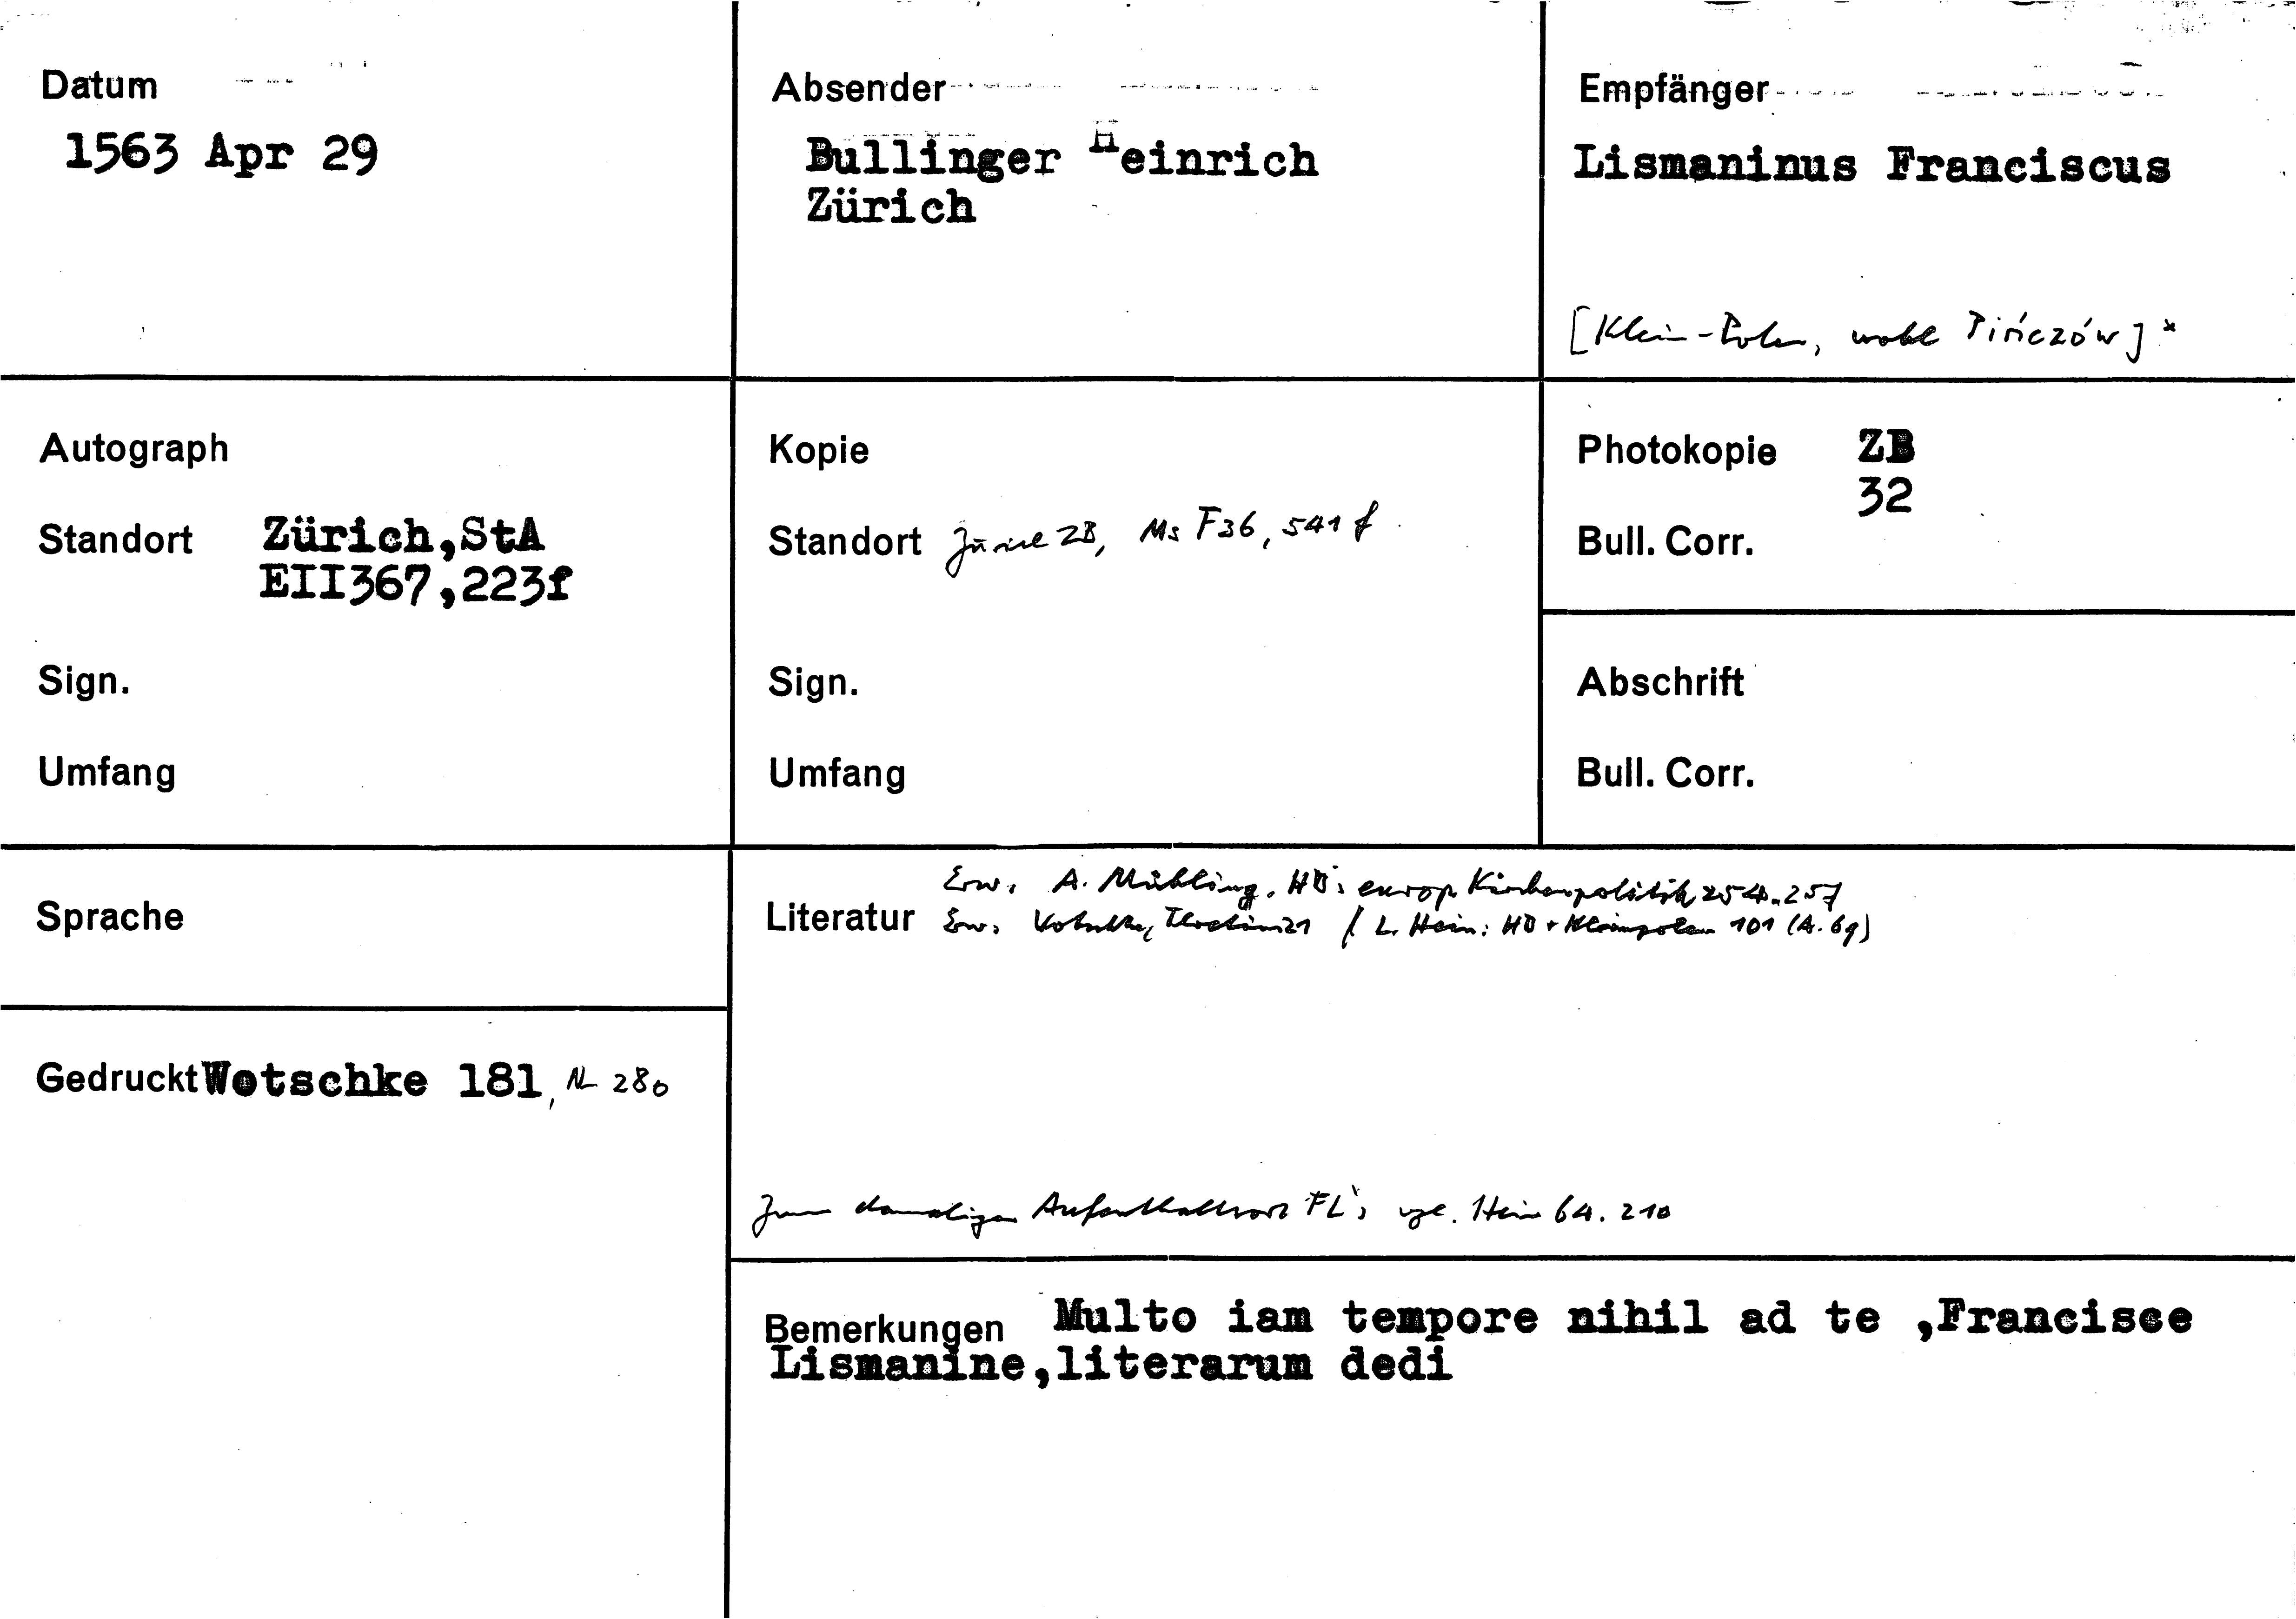 Datum
1563 Apr 29
Absender
Bullinger Heinrich
Zürich
Empfänger
Lismaninus Franciscus
[Klein-Polen, wohl Pińczów]*
Autograph
Standort Zürich,StA
EII367,223f
Sign.
Umfang
Kopie
Standort Zürich ZB, Ms F36, 541 f
Sign.
Umfang
Photokopie ZB
32
Bull. Corr.
Abschrift
Bull. Corr.
Sprache
Erw. A. Mühling, HB's europ. Kirchenpolitik 254.257
Literatur Erw. / L. Hein: HB + Kleinpolen 101 (A. 69)
Gedruckt Wotschke 181, Nr 280
Zum damaligen Aufenthaltsort FL's vgl. Hein 64. 210
Bemerkungen Multo iam tempore nihil ad te ,Francisce
Lismanine,literarum dedi